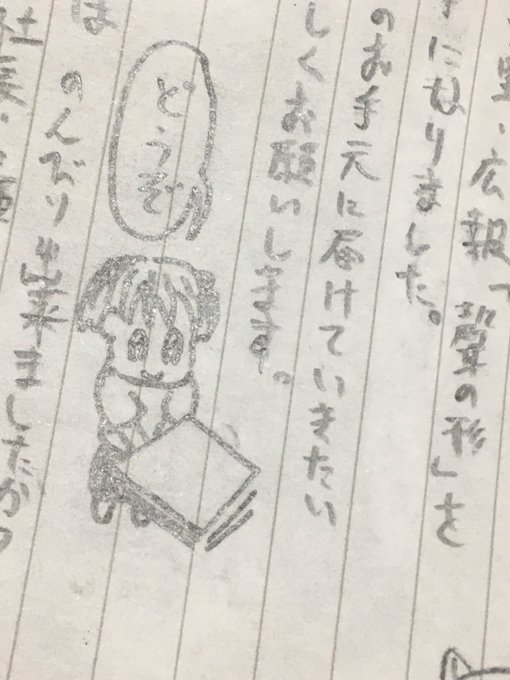 ・広報「聲の形」を
になりました。
のお手元に届けていきたい
しくお願いします。
どうぞ
は
のんびり出来ましたか